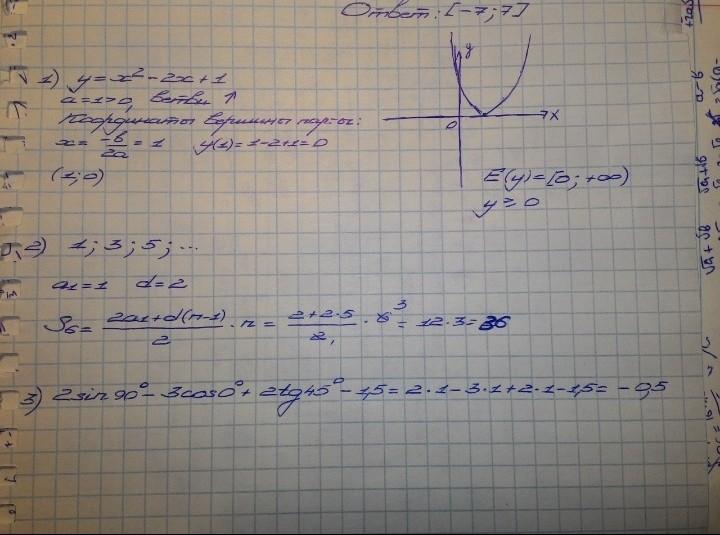 Ответ: [-7; 7]
1) y = x² - 2x + 1
a = 1 > 0, ветви ↑
Координаты вершины пар-ты:
x = -b/2a = 1 y(1) = 1 - 2 + 1 = 0
(1; 0)
y
0
x
E(y) = [0; +∞)
y ≥ 0
2) 1; 3; 5; ...
a1 = 1 d = 2
S6 = (2a1 + d(n-1))/2 · n = (2 + 2·5)/2 · 6 3 = 12·3 = 36
3) 2sin90° - 3cos0° + 2tg45° - 1,5 = 2·1 - 3·1 + 2·1 - 1,5 = -0,5